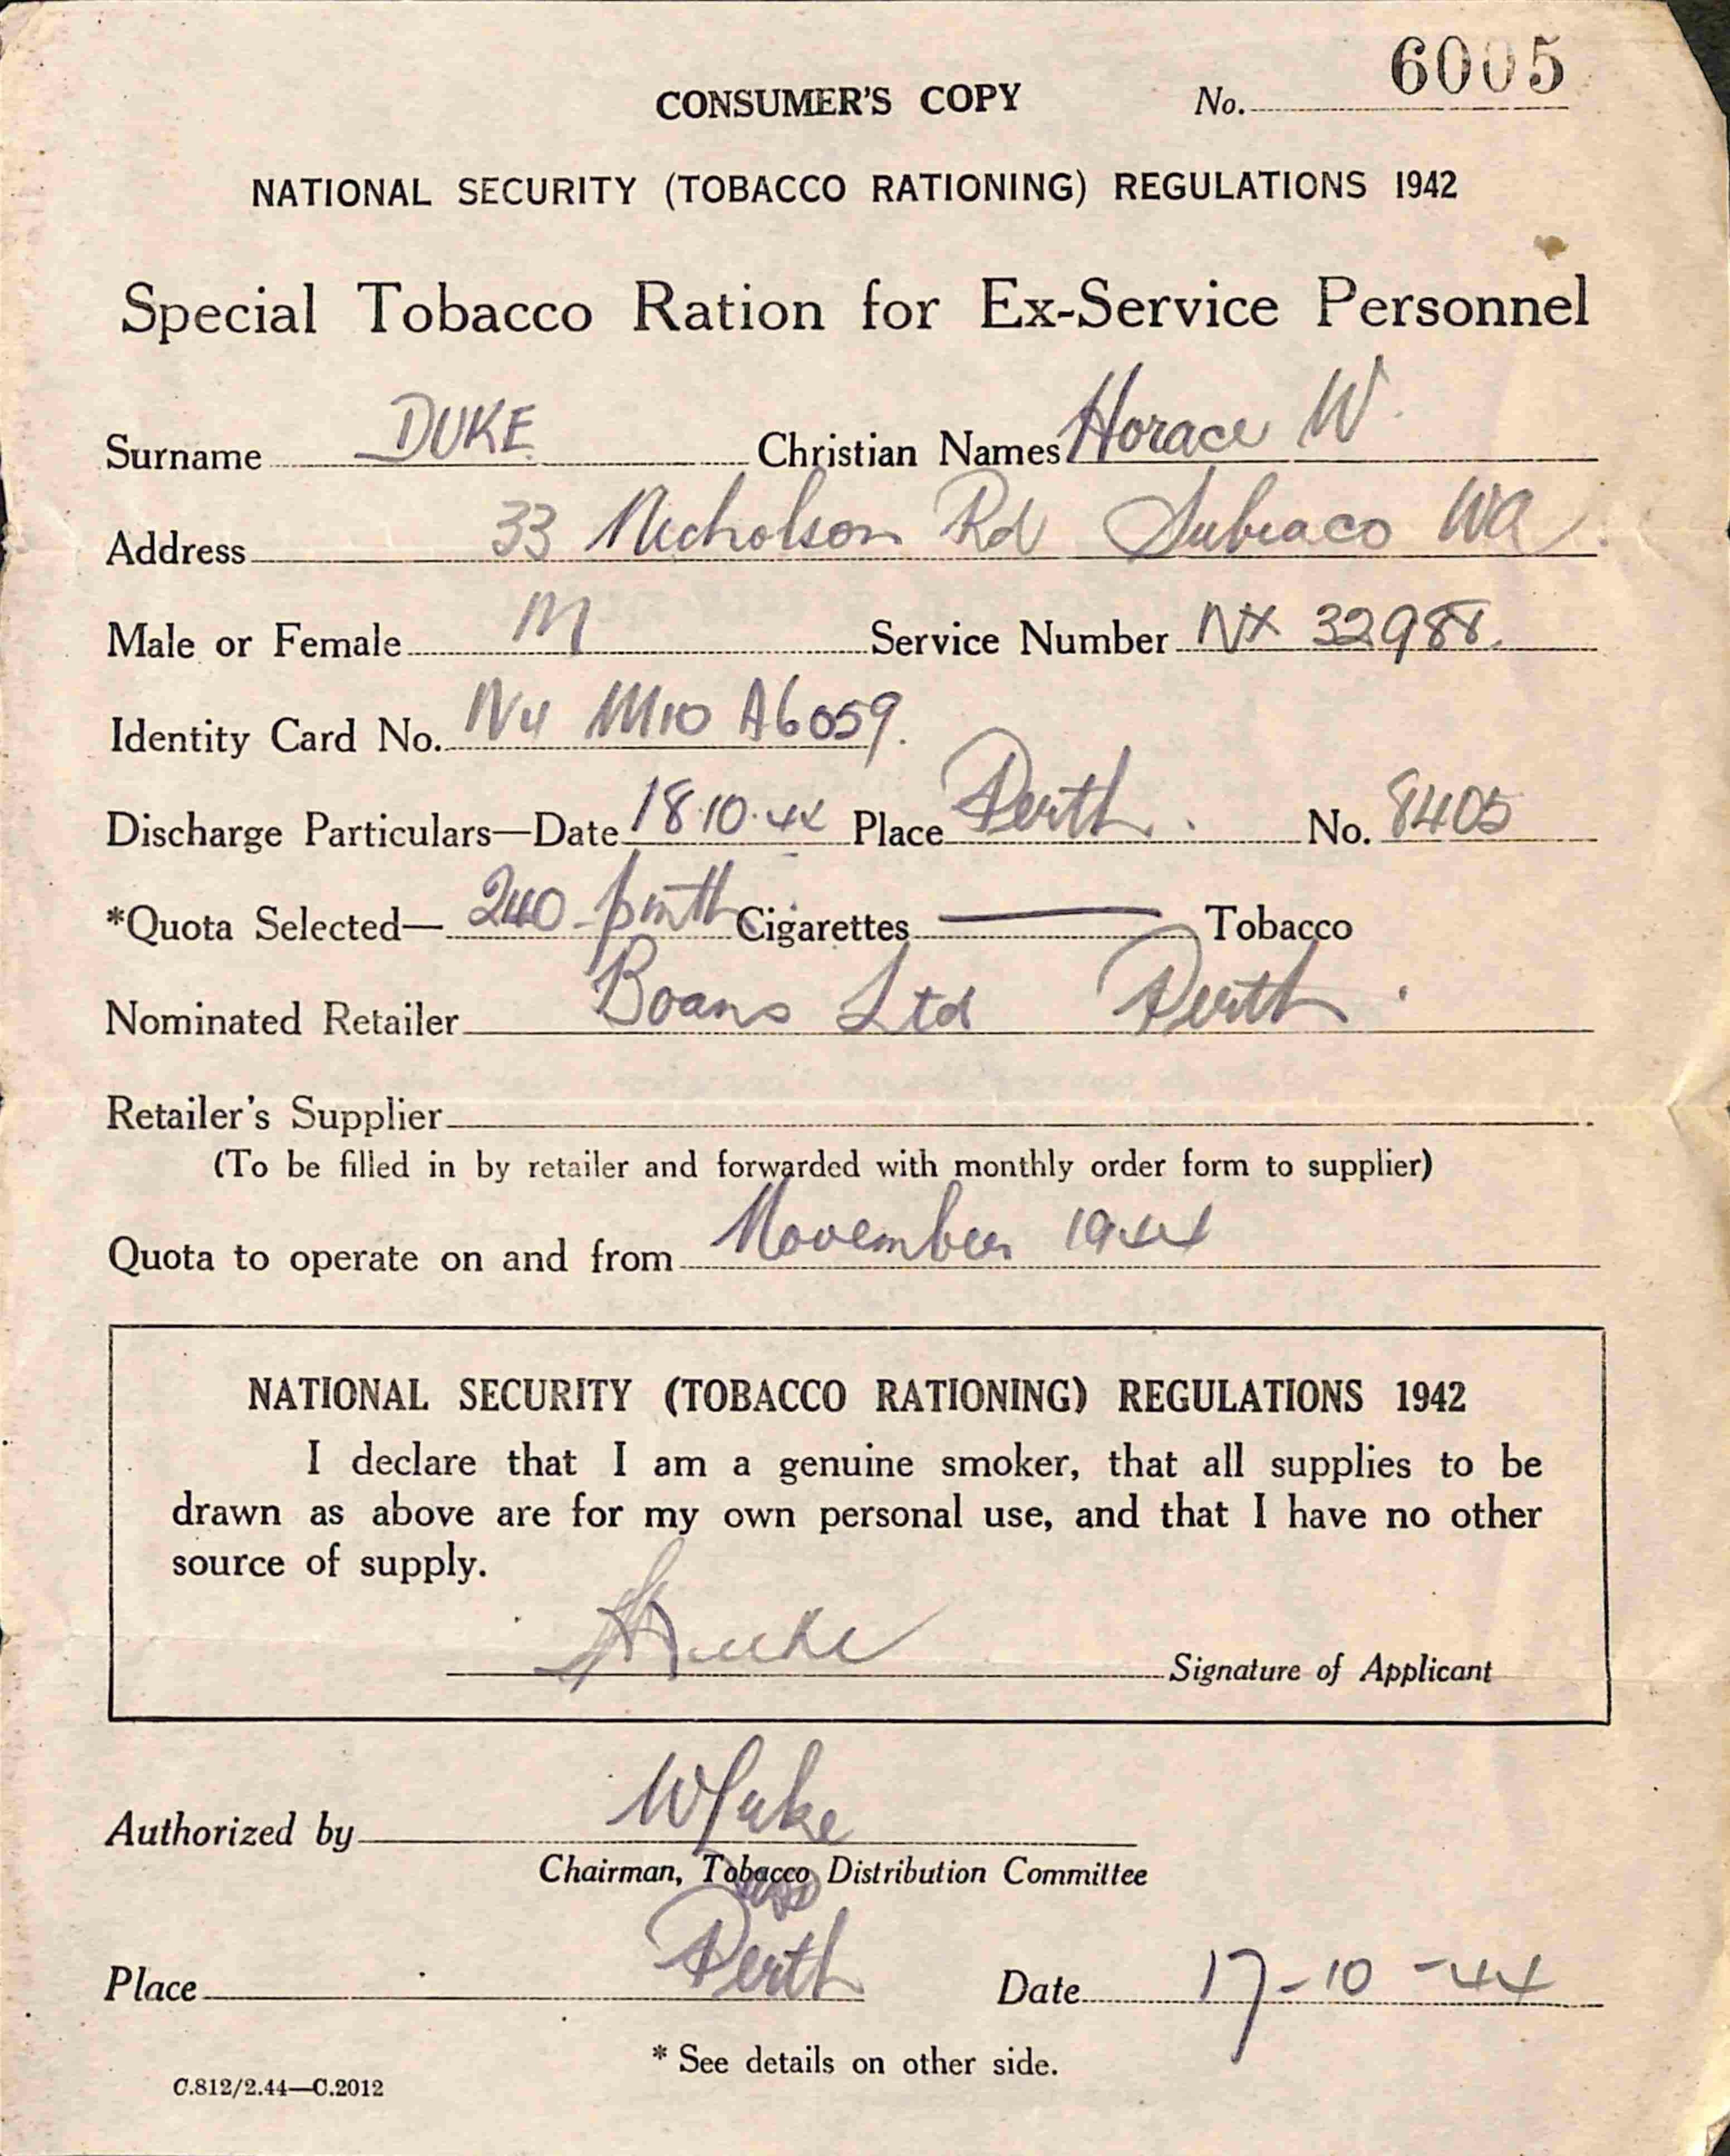 CONSUMER'S COPY No. 6005
NATIONAL SECURITY (TOBACCO RATIONING) REGULATIONS 1942
Special Tobacco Ration for Ex-Service Personnel
Surname DUKE Christian Names Horace W.
Address 33 Nicholson Rd Subiaco WA.
Male or Female M Service Number NX 32988.
Identity Card No. M10 A6059.
Discharge Particulars—Date 18.10.44 Place Perth. No. 8405
*Quota Selected— 240 p mth Cigarettes — Tobacco
Nominated Retailer Boans Ltd Perth.
Retailer's Supplier
(To be filled in by retailer and forwarded with monthly order form to supplier)
Quota to operate on and from November 1944
NATIONAL SECURITY (TOBACCO RATIONING) REGULATIONS 1942
I declare that I am a genuine smoker, that all supplies to be
drawn as above are for my own personal use, and that I have no other
source of supply.
Signature of Applicant
Authorized by
Chairman, Tobacco Distribution Committee
Place Perth Date 17-10-44
* See details on other side.
C.812/2.44—C.2012